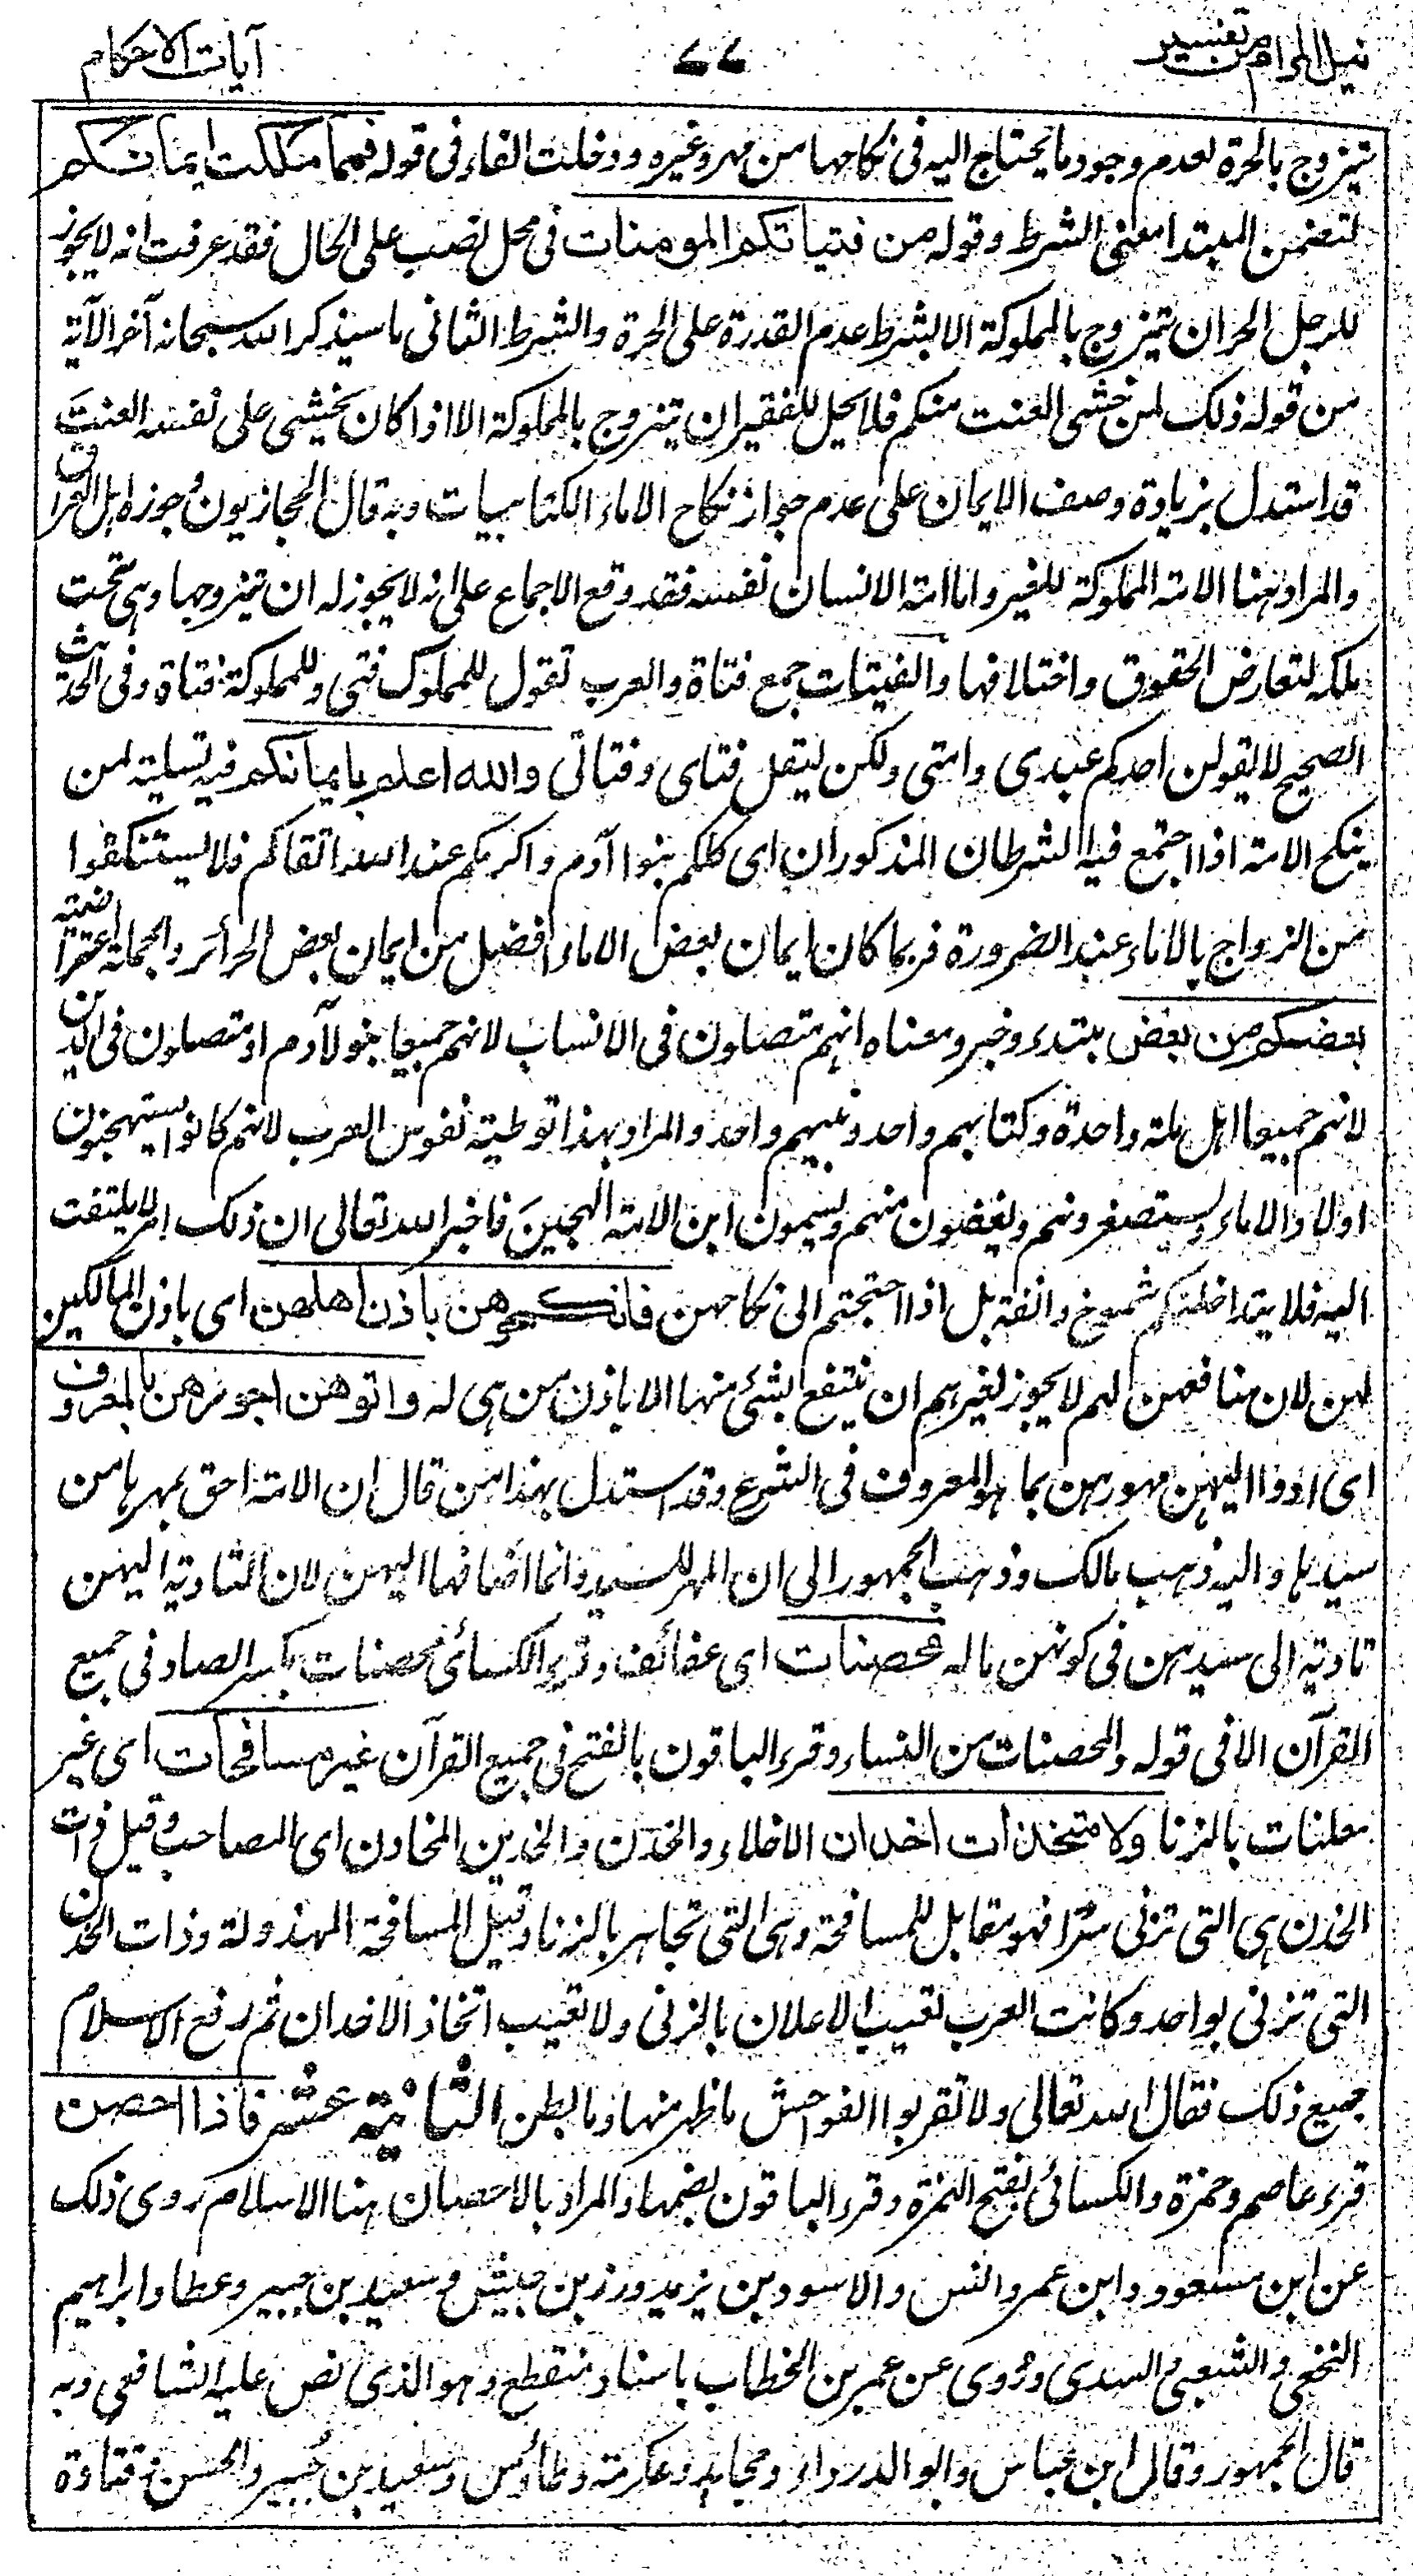 نيل المرام من تفسير ٧٧ آيات الاحكام
يتزوج بالحرة لعدم وجود ما يحتاج اليه فى نكاحها من مهر وغيره ودخلت الفاء فى قوله فمما ملكت ايمانكم
لتضمن المبتدا معنى الشرط وقوله من فتياتكم المومنات فى محل نصب على الحال فقد عرفت انه لا يجوز
للرجل الحر ان يتزوج بالمملوكة الا بشرط عدم القدرة على الحرة والشرط الثانى ما سيذكر الله سبحانه آخر الآية
من قوله ذلك لمن خشى العنت منكم فلا يحل للفقير ان يتزوج بالمملوكة الا اذا كان يخشى على نفسه العنت و
قد استدل بزيادة وصف الايمان على عدم جواز نكاح الاماء الكتابيات وبه قال الحجازيون وجوزه اهل العراق
والمراد ههنا الامة المملوكة للغير واما امة الانسان نفسه فقد وقع الاجماع على انه لا يجوز له ان يتزوجها وهى تحت
ملكه لتعارض الحقوق واختلافها والفتيات جمع فتاة والعرب تقول للمملوك فتى وللمملوكة فتاة وفى الحديث
الصحيح لا يقولن احدكم عبدى وامتى ولكن ليقل فتاى وفتاتى والله اعلم بايمانكم فيه تسلية لمن
ينكح الامة اذا اجتمع فيه الشرطان المذكوران اى كلكم بنوا آدم واكرمكم عند الله اتقاكم فلا يستنكفوا
من الزواج بالاماء عند الضرورة فربما كان ايمان بعض الاماء افضل من ايمان بعض الحرائر والجملة اعتراضية
بعضكم من بعض مبتدء وخبر ومعناه انهم متصلون فى الانساب لانهم جميعا بنو لآدم او متصلون فى الدين
لانهم جميعا اهل ملة واحدة وكتابهم واحد ونبيهم واحد والمراد بهذا توطية نفوس العرب لانهم كانوا يستهجنون
اولاد الاماء ويستصغرونهم ويغضون منهم ويسمون ابن الامة الهجين فاخبر الله تعالى ان ذلك امر لا يلتفت
اليه فلا يتداخلنكم شموخ وانفة بل اذا احتجتم الى نكاحهن فانكحوهن باذن اهلهن اى باذن المالكين
لهن لان منافعهن لهم لا يجوز لغيرهم ان ينتفع بشئ منها الا باذن من هى له واتوهن اجورهن بالمعروف
اى ادوا اليهن مهورهن بما هو المعروف فى الشرع وقد استدل بهذا من قال ان الامة احق بمهرها من
سيدها واليه ذهب مالك وذهب الجمهور الى ان المهر للسيد وانما اضافها اليهن لان التادية اليهن
تادية الى سيدهن فى كونهن ماله محصنات اى عفائف وقرء الكسائى محصنات بكسر الصاد فى جميع
القرآن الا فى قوله والمحصنات من النساء وقرء الباقون بالفتح فى جميع القرآن غير مسافحات اى غير
معلنات بالزنا ولا متخذات اخدان الاخلاء والخدن والخدين المخادن اى المصاحب وقيل ذات
الخدن هى التى تزنى سرا فهو مقابل للمسافحة وهى التى تجاهر بالزنا وقيل المسافحة المبذولة وذات الخدن
التى تزنى بواحد وكانت العرب تعيب الاعلان بالزنى ولا تعيب اتخاذ الاخدان ثم رفع الاسلام
جميع ذلك فقال الله تعالى ولا تقربوا الفواحش ما ظهر منها وما بطن الثانية عشر فاذا احصن
قرء عاصم وحمزة والكسائى بفتح الهمزة وقرء الباقون بضمها والمراد بالاحصان هنا الاسلام روى ذلك
عن ابن مسعود وابن عمر وانس والاسود بن يزيد وزر بن حبيش وسعيد بن جبير وعطا وابراهيم
النخعى والشعبى والسدى وروى عن عمر بن الخطاب باسناد منقطع وهو الذى نص عليه الشافعى وبه
قال الجمهور وقال ابن عباس وابو الدرداء ومجاهد وعكرمة وطاؤس وسعيد بن جبير والحسن وقتادة